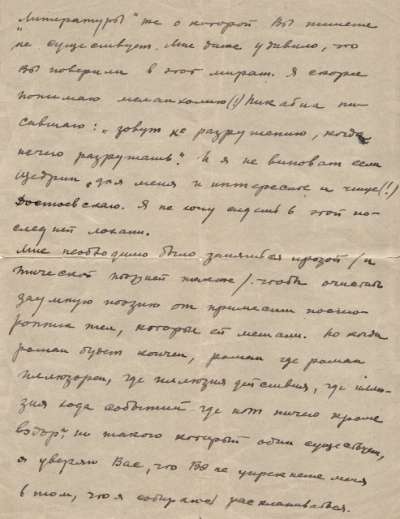 "Литературы" же о которой Вы пишете
не существует. Мне даже удивило, что
Вы поверили в этот мираж. Я скорее
понимаю меланхолию(!) Пикабиа пи-
савшаго: "зовут к разрушению, когда
нечего разрушать." И я не виноват если
Щедрин для меня и интереснее и чище(!)
Достоевскаго. Я не хочу сидеть в этой по-
следней лохани.
Мне необходимо было заняться прозой /и
эпической поэзией также/ чтобы очистить
заумную поэзию от примесей
тех, которые ей мешали. Но когда
роман будет кончен, роман где роман
иллюзорен, где иллюзия действия, где иллю-
зия хода событий где нет ничего кроме
вздор, но такого который один существует,
я уверяю Вас, что Вы не упрекнете меня
в том, что я собираюсь раскланиваться.